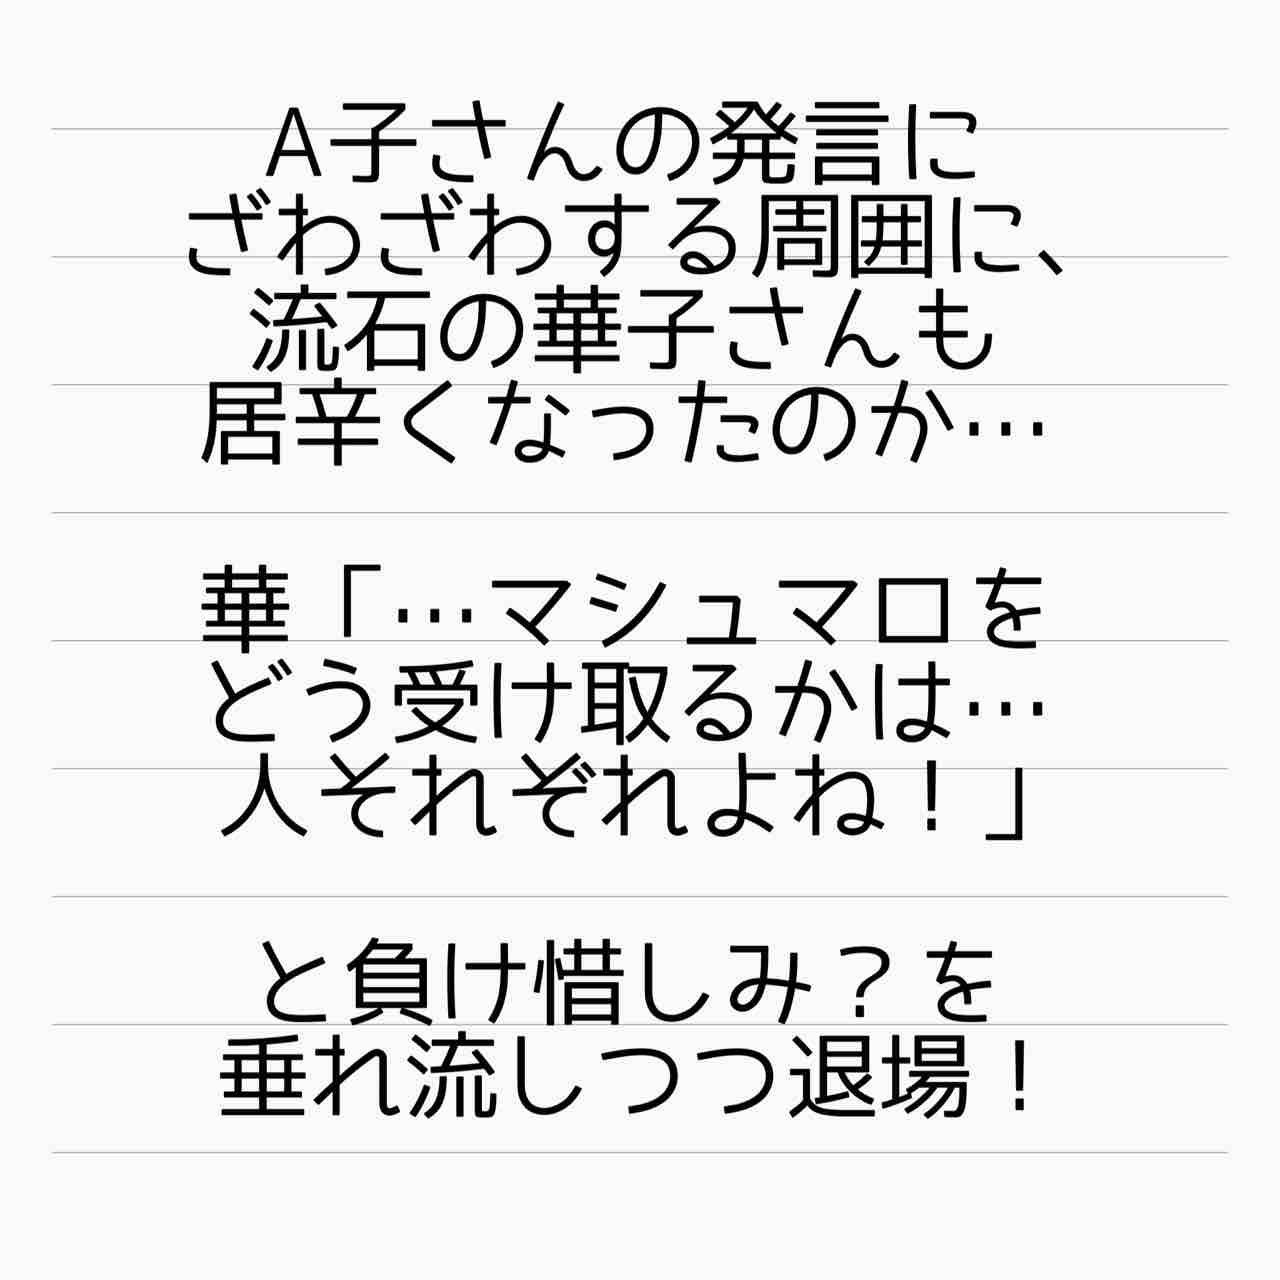 A子さんの発言に
ざわざわする周囲に、
流石の華子さんも
居辛くなったのか…
華「…マシュマロを
どう受け取るかは…
人それぞれよね！」
と負け惜しみ？を
垂れ流しつつ退場！